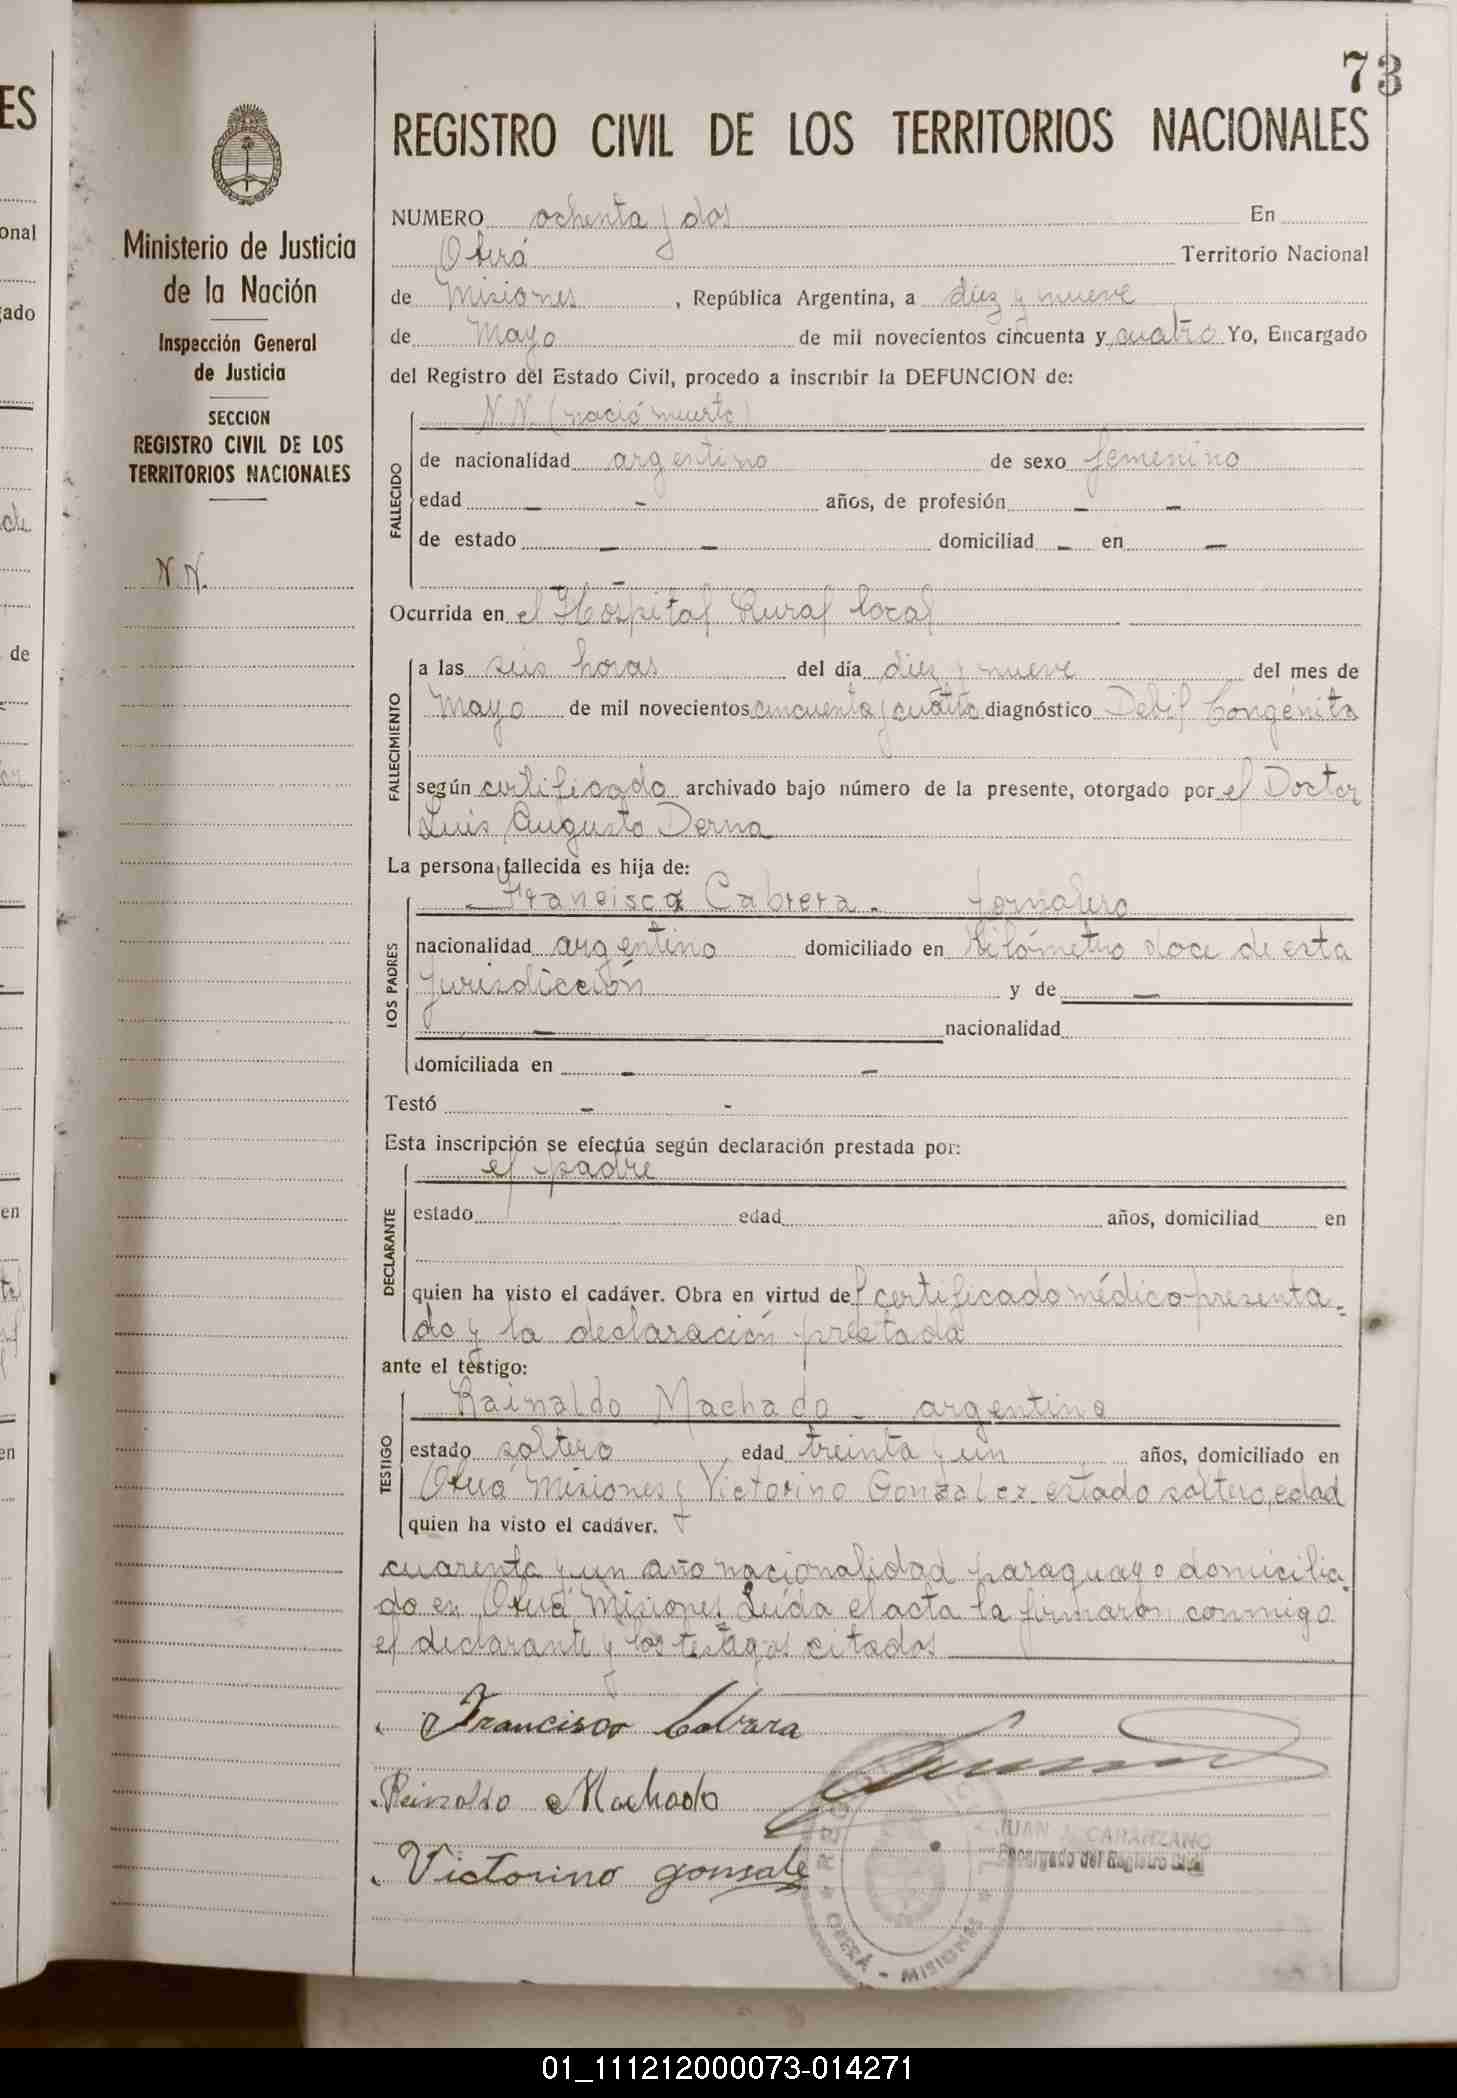 73
REGISTRO CIVIL DE LOS TERRITORIOS NACIONALES
Ministerio de Justicia
de la Nación
Inspección General
de Justicia
SECCION
REGISTRO CIVIL DE LOS
TERRITORIOS NACIONALES
N.N.
NUMERO ochenta y dos En
Oberá Territorio Nacional
de Misiones, República Argentina, a diez y nueve
de Mayo de mil novecientos cincuenta y cuatro Yo, Encargado
del Registro del Estado Civil, procedo a inscribir la DEFUNCION de:
N.N. (nació muerto)
FALLECIDO
de nacionalidad argentino de sexo femenino
edad - - años, de profesión - -
de estado - - domiciliad - en -
-
Ocurrida en el Hospital Rural local
FALLECIMIENTO
a las seis horas del día diez y nueve del mes de
Mayo de mil novecientos cincuenta y cuatro diagnóstico Debil Congénita
según certificado archivado bajo número de la presente, otorgado por el Doctor
Luis Augusto Derna
La persona fallecida es hija de:
LOS PADRES
- Francisco Cabrera - Jornalero
nacionalidad argentino domiciliado en Kilómetro doce de esta
Jurisdicción y de -
- nacionalidad
domiciliada en - -
Testó - -
Esta inscripción se efectúa según declaración prestada por:
DECLARANTE
el padre
estado edad años, domiciliad en
quien ha visto el cadáver. Obra en virtud del certificado médico presenta-
do y la declaración prestada
ante el testigo:
TESTIGO
Rainaldo Machado - argentino
estado soltero edad treinta y un años, domiciliado en
Oberá Misiones y Victorino Gonzalez estado soltero, edad
quien ha visto el cadáver.
cuarenta y un año nacionalidad paraguayo domicilia-
do en Oberá Misiones. Leída el acta la firmaron conmigo
el declarante y los testigos citados
Francisco Cabrera
Reinaldo Machado
Victorino gonsale
JUAN CARANZANO
Encargado del Registro Civil
OBERÁ - MISIONES
01_111212000073-014271